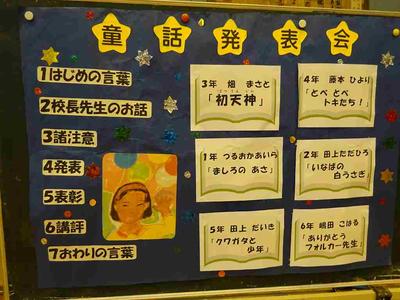 童話発表会
1はじめの言葉
2校長先生のお話
3諸注意
4発表
5表彰
6講評
7おわりの言葉
3年 畑 まさと
「初天神」
4年 藤本 ひより
「とべ とべ
トキたち！」
1年 つるおかあいら
「ましろの あさ」
2年 田上ただひろ
「いなばの
白うさぎ」
5年 田上 だいき
「クワガタと
少年」
6年 嶋田 こはる
「ありがとう
フォルカー先生」